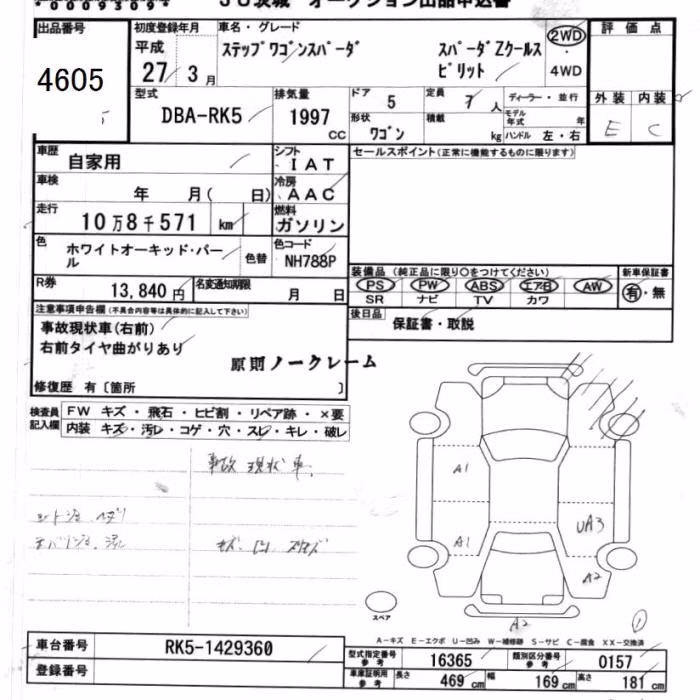 *00093094*
JU茨城 オークション出品申込書
出品番号
4605
初度登録年月
平成
27 3 月
車名・グレード
ステップワゴンスパーダ スパーダZクールス
ピリット
2WD
4WD
評価点
外装 内装
E C
型式
DBA-RK5
排気量
1997
CC
ドア 5
定員 7 人
ディーラー・並行
形状
ワゴン
積載 kg
モデル年式 年
ハンドル 左・右
車歴
自家用
シフト
IAT
セールスポイント(正常に機能するものに限ります)
車検
年 月( 日)
冷房
AAC
走行
10万8千571 km
燃料
ガソリン
色
ホワイトオーキッド・パール
色替
色コード
NH788P
装備品 (純正品に限り○をつけてください)
新車保証書
PS PW ABS エアB AW
SR ナビ TV カワ
有・無
R券
13,840円
名変通知期限
月 日
後日品
保証書・取説
注意事項申告欄(不具合内容等は具体的に記入して下さい)
事故現状車(右前)
右前タイヤ曲がりあり
原則ノークレーム
修復歴 有〔箇所 〕
検査員
記入欄
FW キズ・飛石・ヒビ割・リペア跡・×要
内装 キズ・汚レ・コゲ・穴・スレ・キレ・破レ
事故現状車.
A1
A1
UA3
A2
A2
スペア
1
A-キズ E-エクボ U-凹み W-補修跡 S-サビ C-腐食 XX-交換済
車台番号
RK5-1429360
登録番号
型式指定番号
参考
16365
類別区分番号
参考
0157
車庫証明用
参考
長さ 469 cm
幅 169 cm
高さ 181 cm